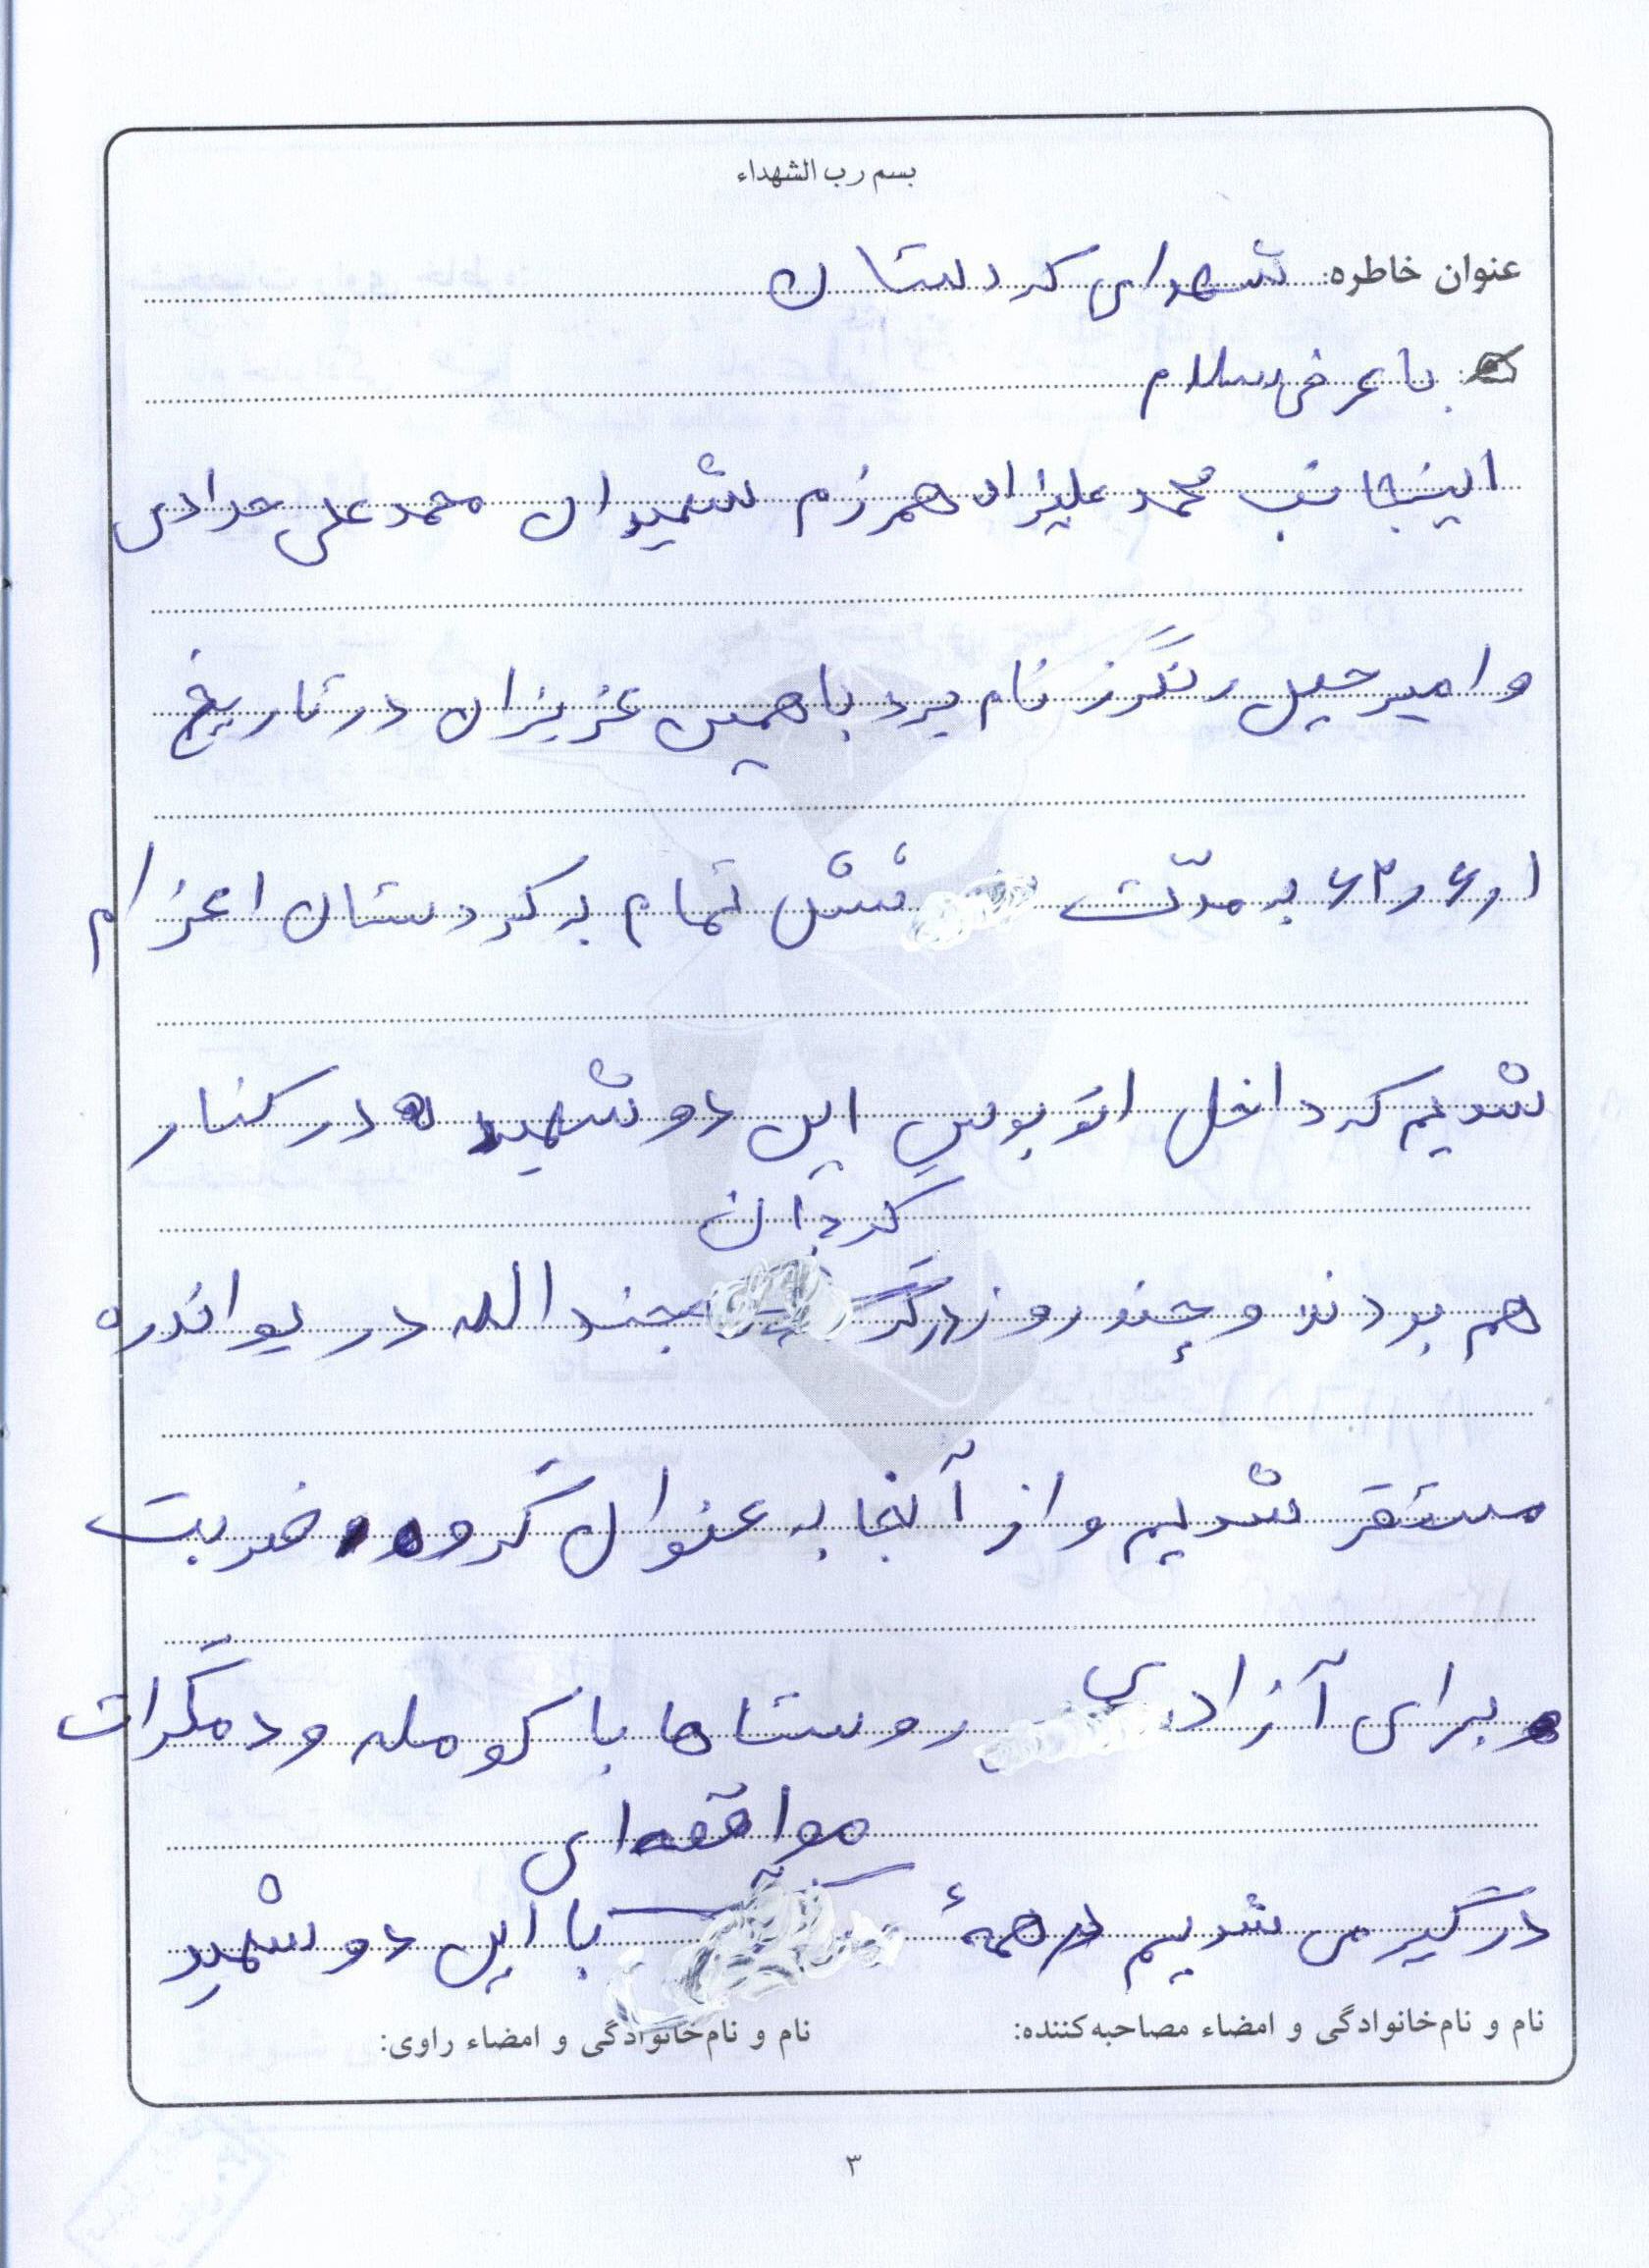 بسم رب الشهداء
عنوان خاطره: شهدای کردستان
با عرض سلام
اینجانب محمد علیزاده همرزم شهیدان محمد علی حدادی
و امیر جلیل رنگرز نام برد با همین عزیزان در تاریخ
۶۲٫۶٫۱ به مدّت شش تمام به کردستان اعزام
شدیم که داخل اتوبوس این دو شهید در کنار
گردان
هم بودند و چند روز در جندالله در یواندره
مستقر شدیم و از آنجا به عنوان گروه ضربت
و برای آزادی روستاها با کومله و دمکرات
مواقعه‌ای
درگیر می شدیم در همهٔ با این دو شهید
نام و نام‌خانوادگی و امضاء مصاحبه‌کننده: نام و نام‌خانوادگی و امضاء راوی:
۳